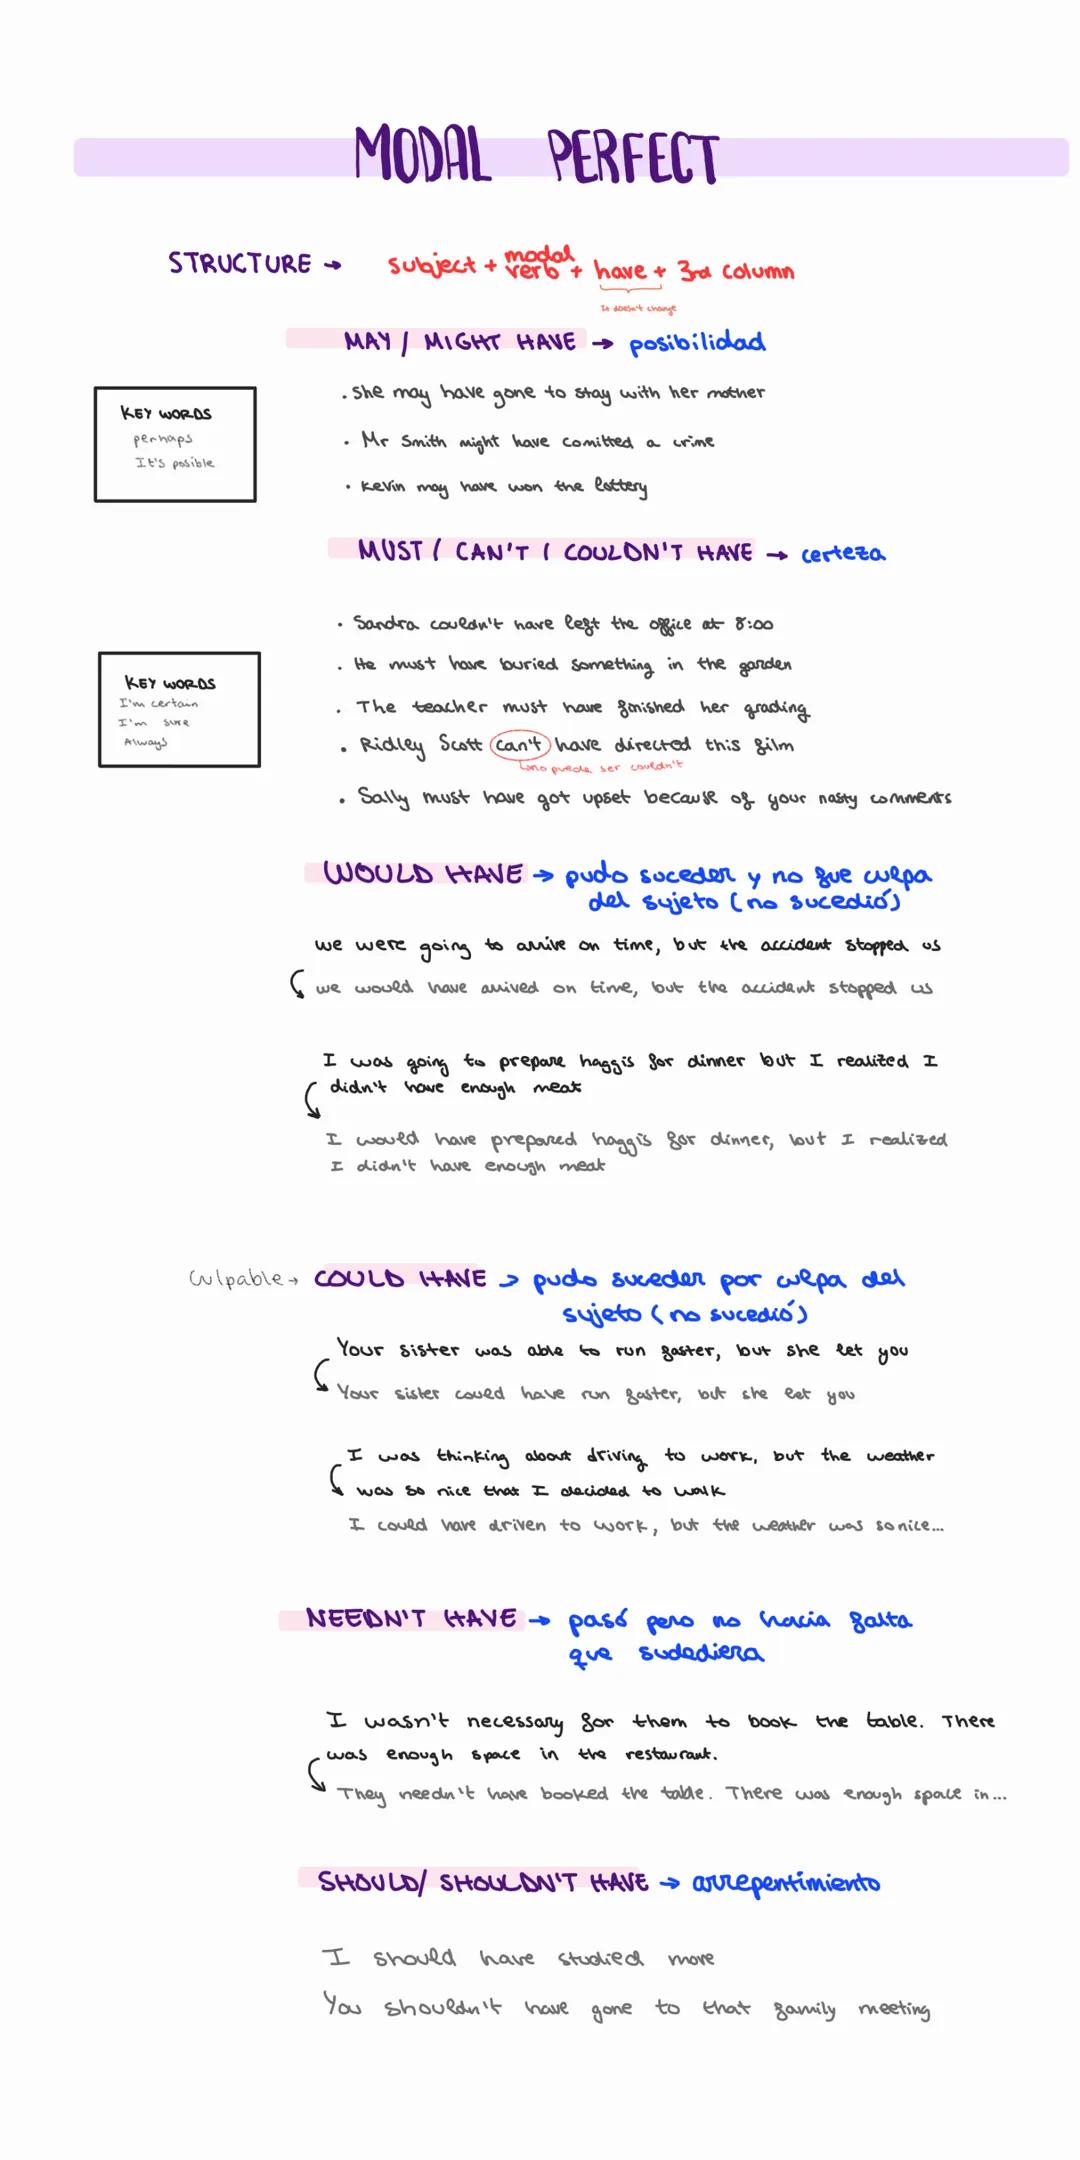 MODAL PERFECT
STRUCTURE → subject + modal verb + have + 3rd column
It doesn't change
MAY / MIGHT HAVE → posibilidad
· She may have gone to stay with her mother
KEY WORDS
perhaps
It's posible
· Mr Smith might have comitted a crime
· Kevin may have won the lottery
MUST / CAN'T / COULDN'T HAVE → certeza
· Sandra couldn't have left the office at 8:00
· He must have buried something in the garden
KEY WORDS
I'm certain
I'm sure
Always
· The teacher must have finished her grading
· Ridley Scott can't have directed this film
↳no puede ser couldn't
· Sally must have got upset because of your nasty comments
WOULD HAVE → pudo suceder y no fue culpa
del sujeto (no sucedió)
we were going to arrive on time, but the accident stopped us
we would have arrived on time, but the accident stopped us
I was going to prepare haggis for dinner but I realized I
didn't have enough meat
I would have prepared haggis for dinner, but I realized
I didn't have enough meat
Culpable → COULD HAVE → pudo suceder por culpa del
sujeto (no sucedió)
Your sister was able to run faster, but she let you
Your sister could have run faster, but she let you
I was thinking about driving to work, but the weather
was so nice that I decided to walk
I could have driven to work, but the weather was so nice...
NEEDN'T HAVE → pasó pero no hacia falta
que sudediera
I wasn't necessary for them to book the table. There
was enough space in the restaurant.
They needn't have booked the table. There was enough space in...
SHOULD/ SHOULDN'T HAVE → arrepentimiento
I should have studied more
You shouldn't have gone to that family meeting